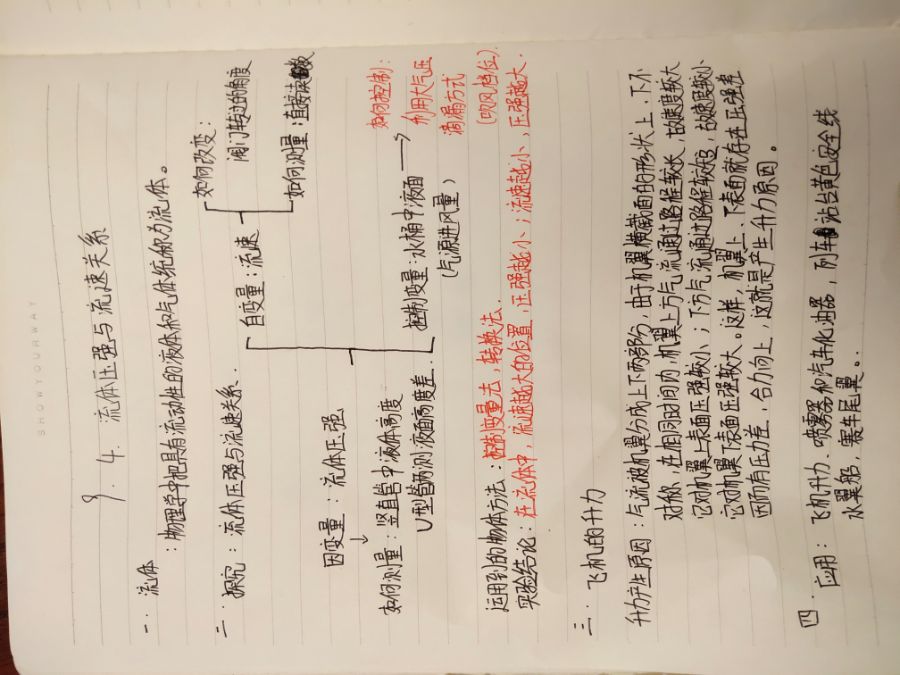 SHOWYOURWAY
9.4. 流体压强与流速关系
一. 流体
：物理学中把具有流动性的液体和气体统称为流体。
二. 探究：流体压强与流速关系.
因变量：流体压强
↓
如何测量：竖直管中液体高度
U型管两测液面高度差.
自变量：流速
如何改变：
阀门转过的角度
如何测量：直接读数
控制变量：水桶中液面
(气源进风量)
如何控制：
利用大气压
滴漏方式
(吹风档位).
运用到的物体方法：控制变量法，转换法.
实验结论：在流体中，流速越大的位置，压强越小；流速越小，压强越大.
三. 飞机的升力
升力产生原因：气流被机翼分成上下两部分，由于机翼横截面的形状上、下不
对称，在相同时间内，机翼上方气流通过路径较长，故速度较大
它对机翼上表面压强较小；下方气流通过路径较短，故速度较小
它对机翼下表面压强较大。这样，机翼上、下表面就存在压强差
因而有压力差，合力向上，这就是产生升力原因。
四. 应用：飞机升力、喷雾器和汽车化油器，列车站台黄色安全线
水翼船，赛车尾翼。